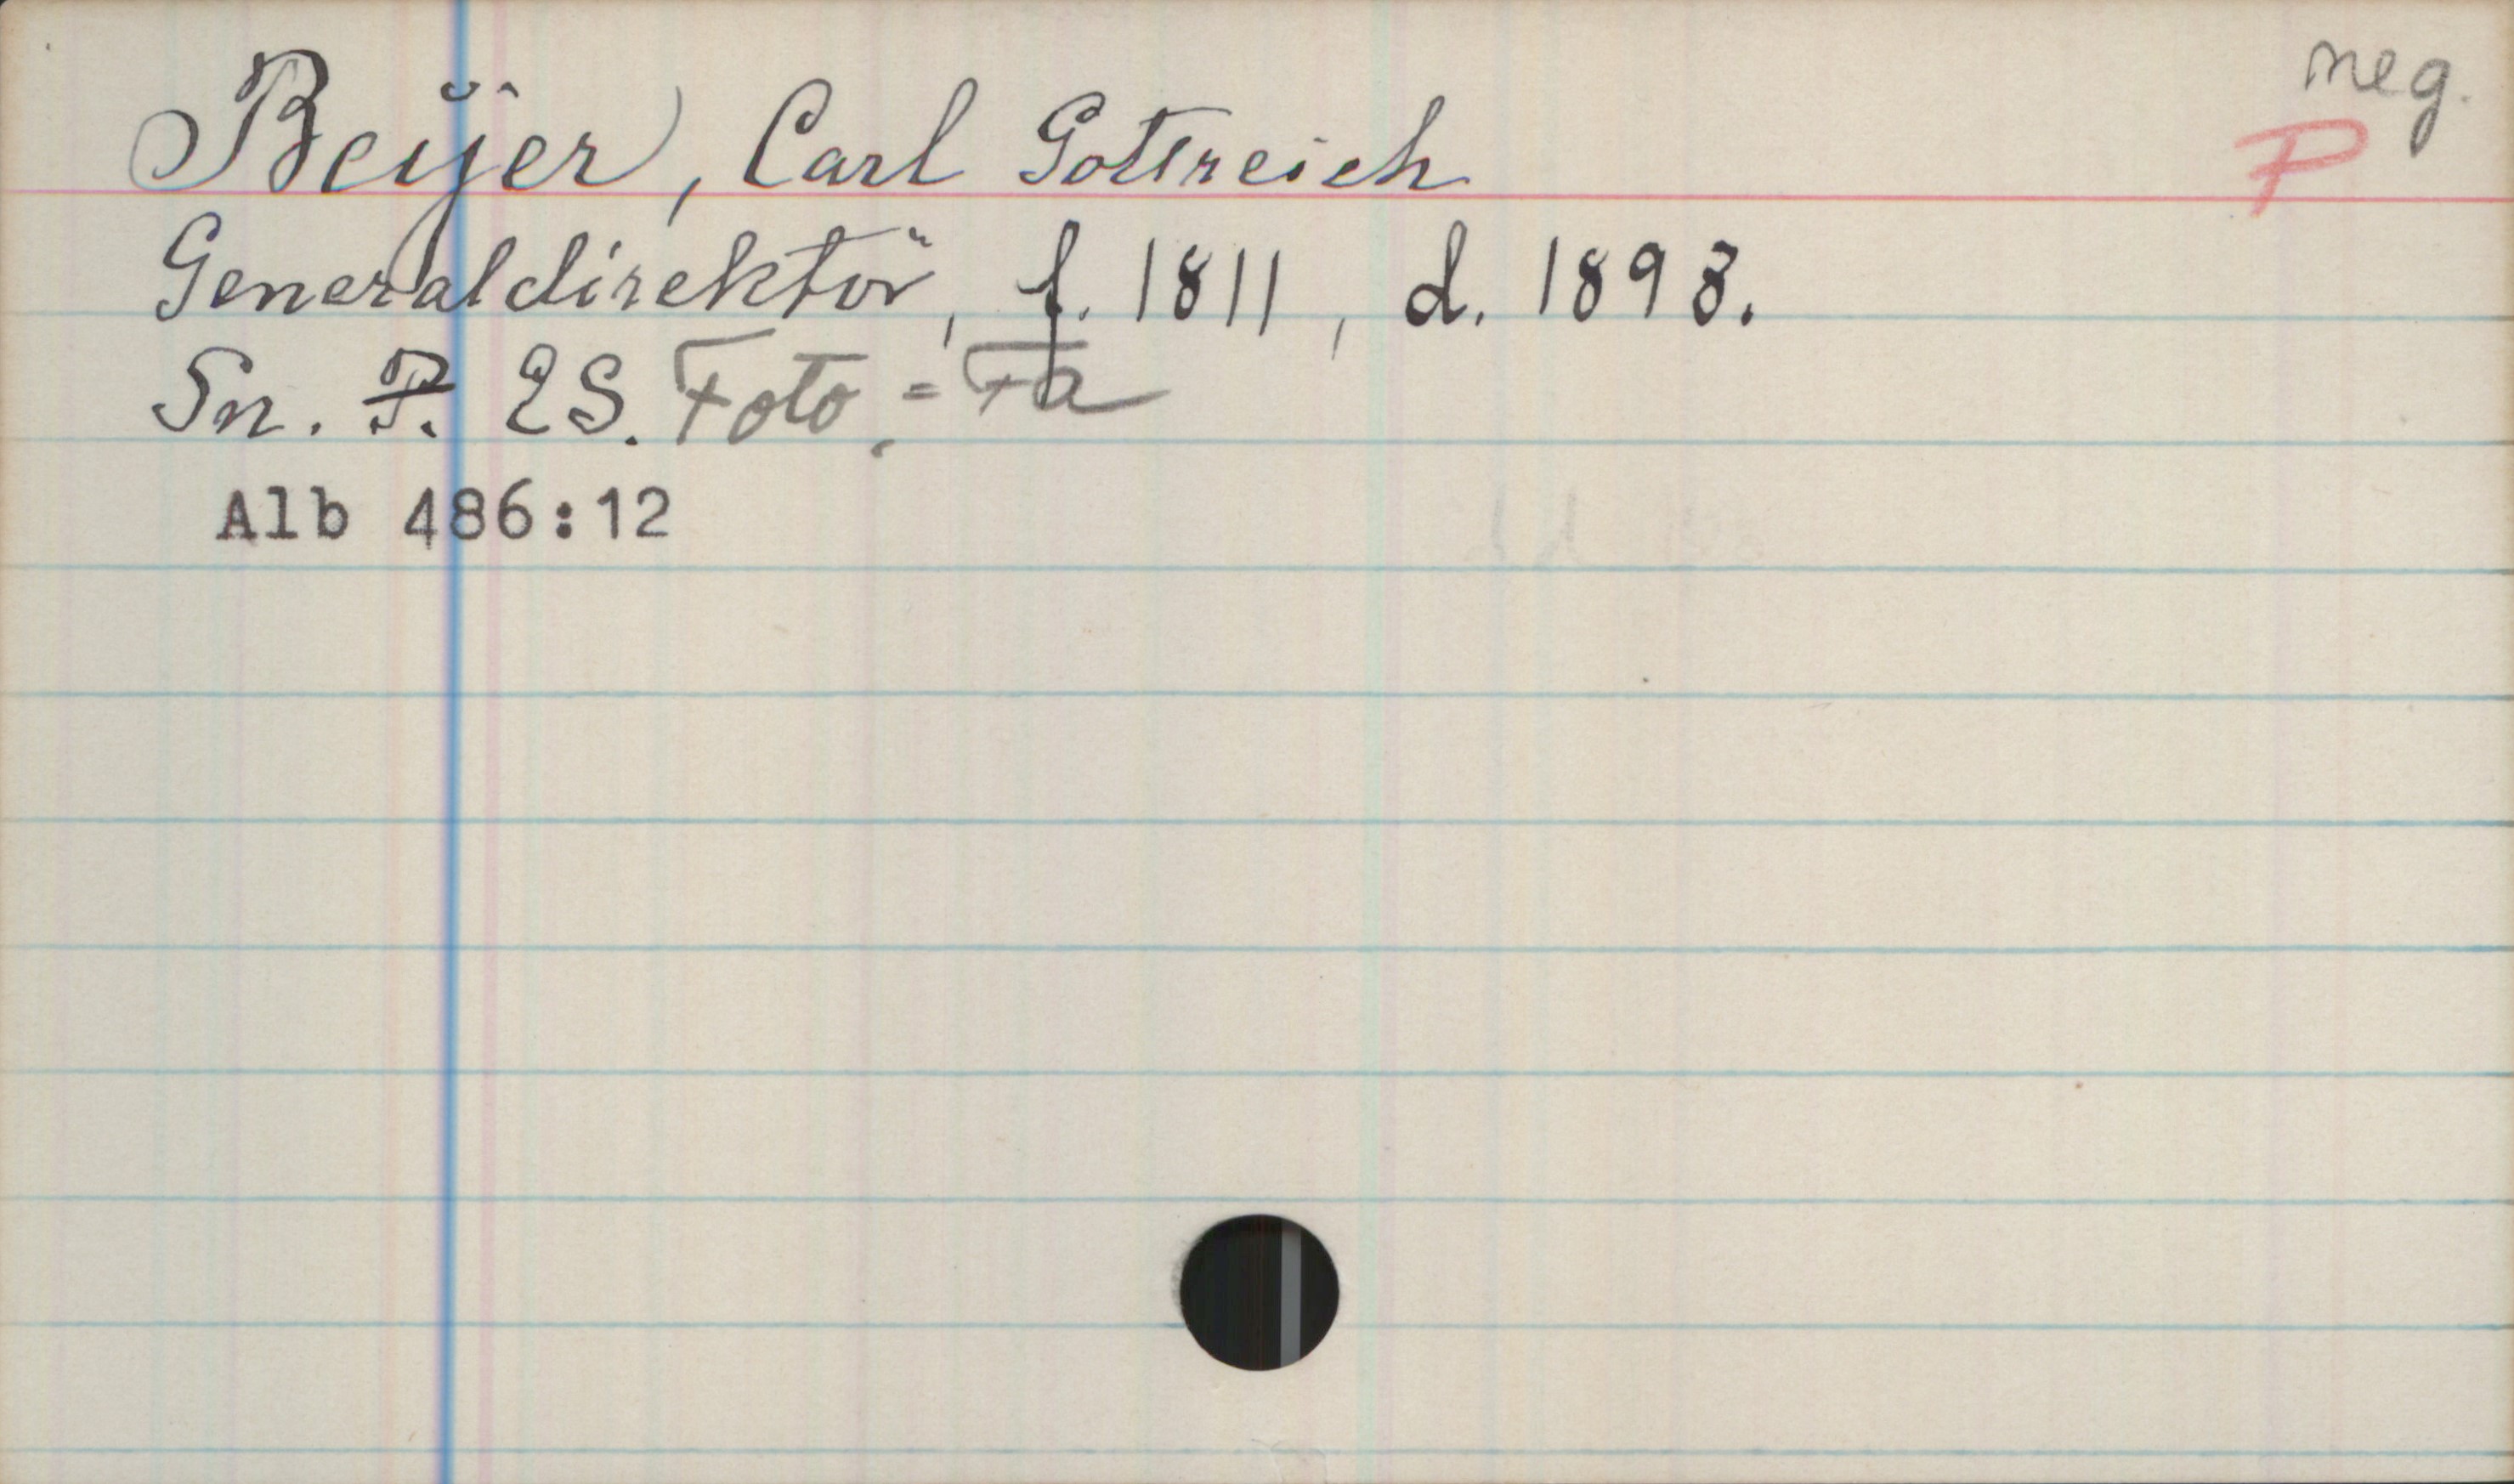 Beijer, Carl Gottreich
neg.
P
Generaldirektör, f. 1811, d. 1893.
Sn. P. ES. Foto. = Fa
Alb 486:12